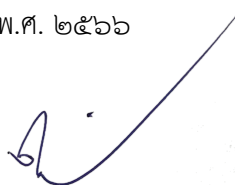 พ.ศ. ๒๕๖๖